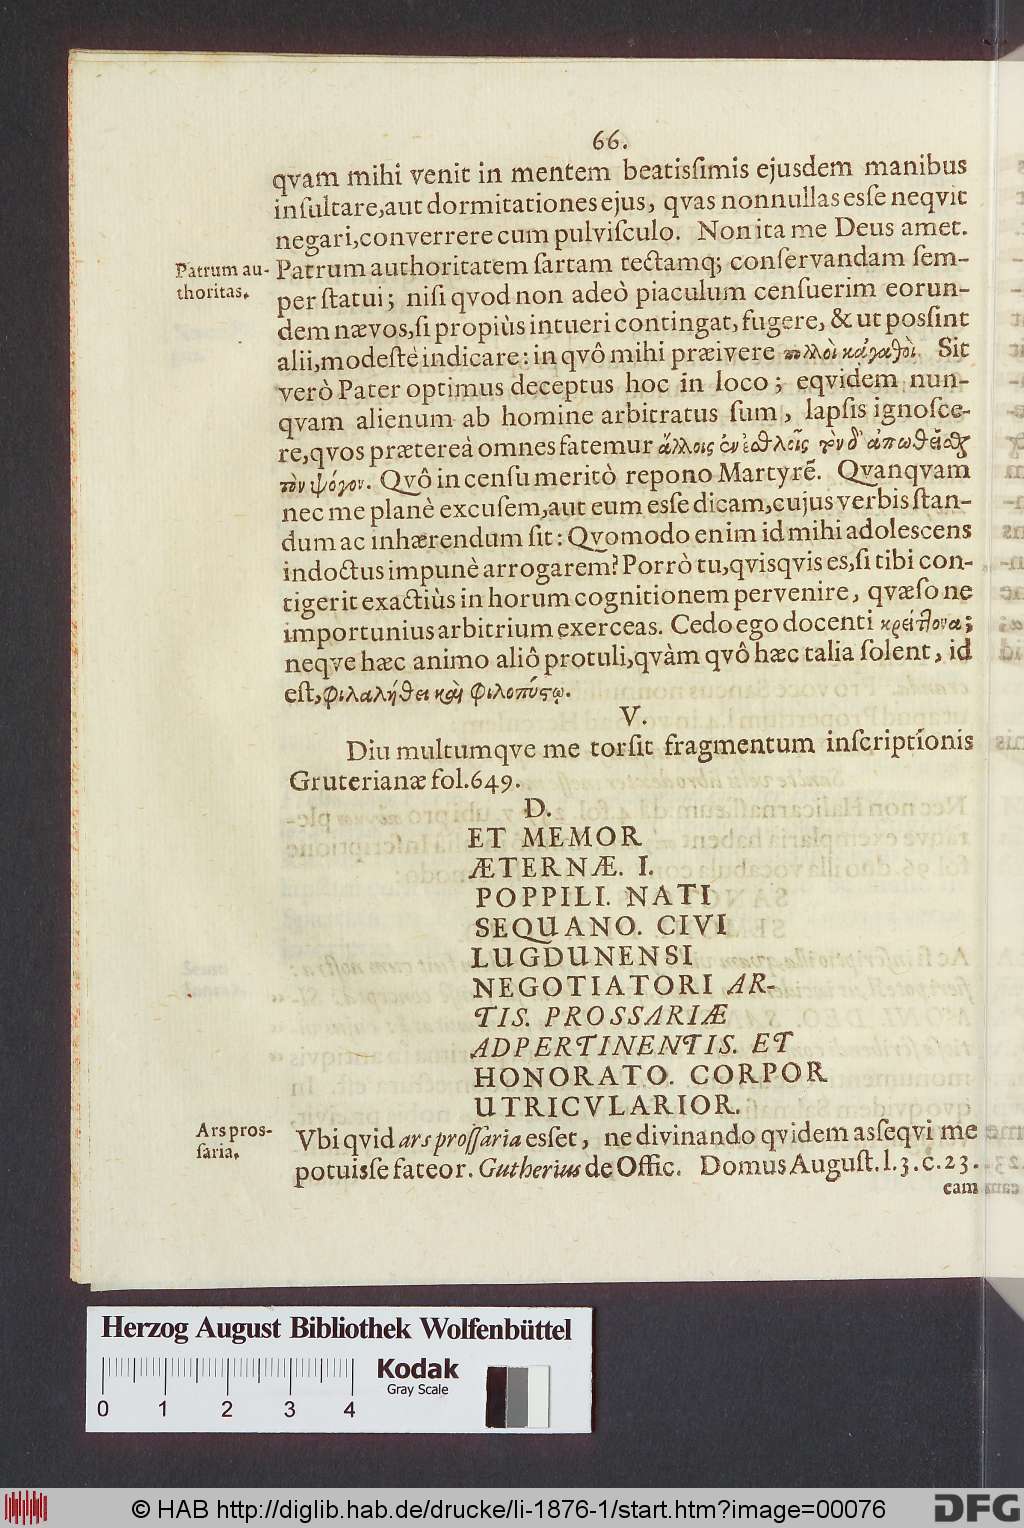 66.
qvam mihi venit in mentem beatisſimis ejusdem manibus
inſultare,aut dormitationes ejus, qvas nonnullas esſe neqvit
negari,converrere cum pulviſculo. Non ita me Deus amet.
Patrum au-
thoritas.
Patrum authoritatem ſartam tectamq; conſervandam ſem-
per ſtatui; niſi qvod non adeò piaculum cenſuerim eorun-
dem nævos,ſi propiùs intueri contingat, fugere, & ut posſint
alii,modeſtè indicare: in qvô mihi præivere πολλοὶ κἀγαθοὶ. Sit
verò Pater optimus deceptus hoc in loco; eqvidem nun-
qvam alienum ab homine arbitratus ſum, lapſis ignoſce-
re,qvos prætereà omnes fatemur ἄλλοις ἐν ἐσθλοῖς τὸν δ' ἀπωθεῖσθαι
τὸν ψόγον. Qvô in cenſu meritò repono Martyrẽ. Qvanqvam
nec me planè excuſem,aut eum esſe dicam,cujus verbis ſtan-
dum ac inhærendum ſit: Qvomodo enim id mihi adolescens
indoctus impunè arrogarem? Porrò tu,qvisqvis es,ſi tibi con-
tigerit exactiùs in horum cognitionem pervenire, qvæſo ne
importunius arbitrium exerceas. Cedo ego docenti κρείττονα;
neqve hæc animo aliô protuli,qvàm qvô hæc talia ſolent, id
eſt, φιλαλήθει καὶ φιλοπύστῳ.
V.
Diu multumqve me torſit fragmentum inſcriptionis
Gruterianæ fol.649.
D.
ET MEMOR
ÆTERNÆ. I.
POPPILI. NATI
SEQUANO. CIVI
LUGDUNENSI
NEGOTIATORI AR-
TIS. PROSSARIÆ
ADPERTINENTIS. ET
HONORATO. CORPOR
UTRICVLARIOR.
Ars pros-
ſaria.
Vbi qvid ars proſſaria esſet, ne divinando qvidem asſeqvi me
potuisſe fateor. Gutherius de Offic. Domus Auguſt. l. 3. c. 23.
eam
Herzog August Bibliothek Wolfenbüttel
Kodak
Gray Scale
0 1 2 3 4
© HAB http://diglib.hab.de/drucke/li-1876-1/start.htm?image=00076
DFG